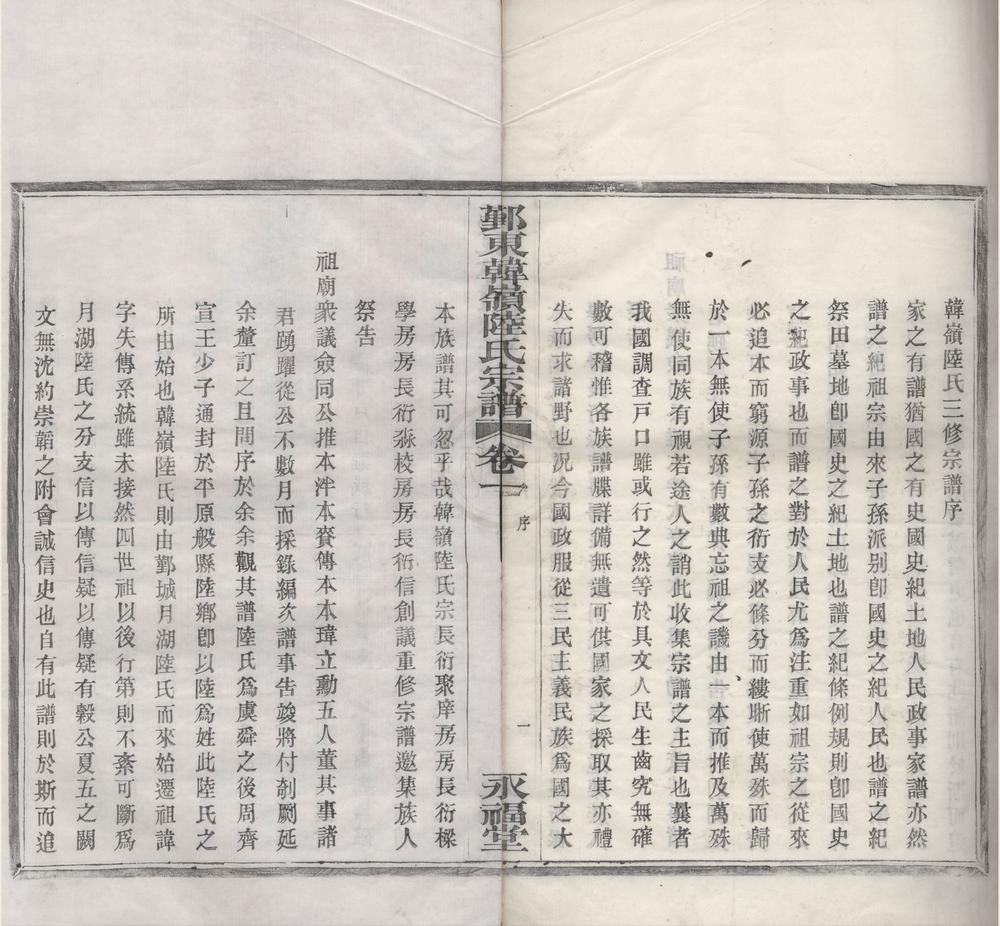 韓嶺陸氏三修宗譜序
家之有譜猶國之有史國史紀土地人民政事家譜亦然
譜之紀祖宗由來子孫派别卽國史之紀人民也譜之紀
祭田墓地卽國史之紀土地也譜之紀條例規則卽國史
之紀政事也而譜之對於人民尤爲注重如祖宗之從來
必追本而窮源子孫之衍支必條分而縷晰使萬殊而歸
於一本無使子孫有數典忘祖之譏由一本而推及萬殊
無使同族有視若途人之誚此收集宗譜之主旨也曩者
我國調查戸口雖或行之然等於具文人民生齒究無確
數可稽惟各族譜牒詳備無遺可供國家之採取其亦禮
失而求諸野也況今國政服從三民主義民族爲國之大
鄞東韓嶺陸氏宗譜 卷一 序 一 永福堂
本族譜其可忽乎哉韓嶺陸氏宗長衍聚庠房房長衍樑
學房房長衍淼校房房長衍信創議重修宗譜邀集族人
祭告
祖廟衆議僉同公推本泮本賚傳本本瑋立勳五人董其事諸
君踴躍從公不數月而採錄編次譜事告竣將付剞劂延
余釐訂之且問序於余余觀其譜陸氏爲虞舜之後周齊
宣王少子通封於平原般縣陸鄉卽以陸爲姓此陸氏之
所由始也韓嶺陸氏則由鄞城月湖陸氏而來始遷祖諱
字失傳系統雖未接然四世祖以後行第則不紊可斷爲
月湖陸氏之分支信以傳信疑以傳疑有穀公夏五之闕
文無沈約崇韜之附會誠信史也自有此譜則於斯而追